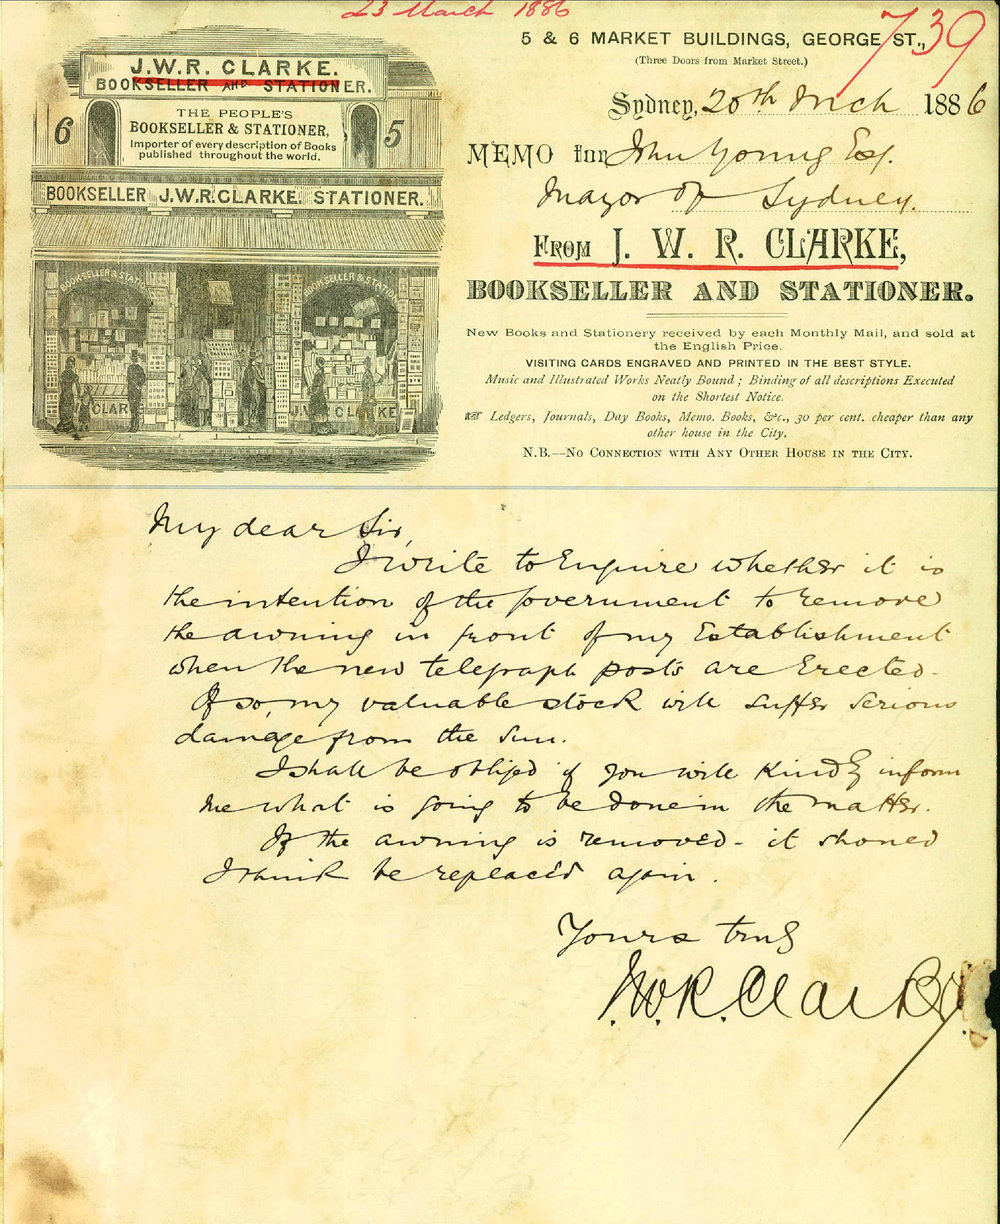 23 March 1886
739
J.W.R. CLARKE.
BOOKSELLER AND STATIONER.
THE PEOPLE'S
BOOKSELLER & STATIONER,
Importer of every description of Books
published throughout the world.
6
5
BOOKSELLER J.W.R.CLARKE. STATIONER.
BOOKSELLER & STATI
BOOKSELLER & STATION
CLAR
J.W. CLARKE
5 & 6 MARKET BUILDINGS, GEORGE ST.,
(Three Doors from Market Street.)
Sydney, 20th Mch 1886
MEMO for John Young Esq.
Mayor of Sydney.
FROM J. W. R. CLARKE,
BOOKSELLER AND STATIONER.
New Books and Stationery received by each Monthly Mail, and sold at
the English Price.
VISITING CARDS ENGRAVED AND PRINTED IN THE BEST STYLE.
Music and Illustrated Works Neatly Bound; Binding of all descriptions Executed
on the Shortest Notice.
☞ Ledgers, Journals, Day Books, Memo. Books, &c., 30 per cent. cheaper than any
other house in the City.
N.B.—NO CONNECTION WITH ANY OTHER HOUSE IN THE CITY.
My dear Sir,
I write to Enquire whether it is
the intention of the Government to remove
the awning in front of my Establishment
when the new telegraph posts are Erected.
If so, my valuable stock will suffer serious
damage from the sun.
I shall be obliged if you will Kindly inform
me what is going to be done in the matter.
If the awning is removed - it should
I think be replaced again.
Yours truly
J.W.R. Clarke